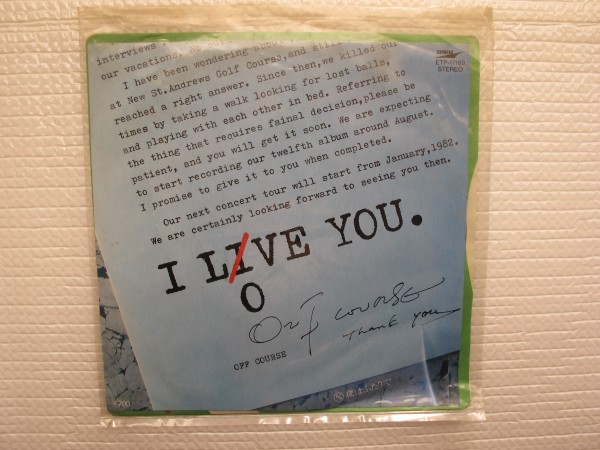 interviews
our vacations,
I have been wondering about
at New St.Andrews Golf Course,and
reached a right answer. Since then,we killed our
times by taking a walk looking for lost balls,
and playing with each other in bed. Referring to
the thing that requires fainal decision,please be
patient, and you will get it soon. We are expecting
to start recording our twelfth album around August.
I promise to give it to you when completed.
Our next concert tour will start from January,1982.
We are certainly looking forward to seeing you then.
I LIVE YOU.
O
Off course
Thank you
OFF COURSE
STEREO
¥700